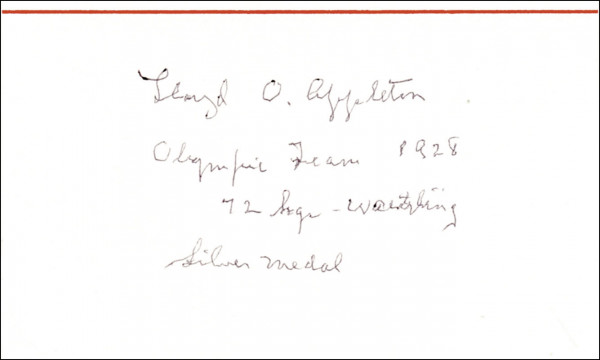 Lloyd O. Appleton
Olympic Team 1928
72 kgs - Wrestling
Silver Medal